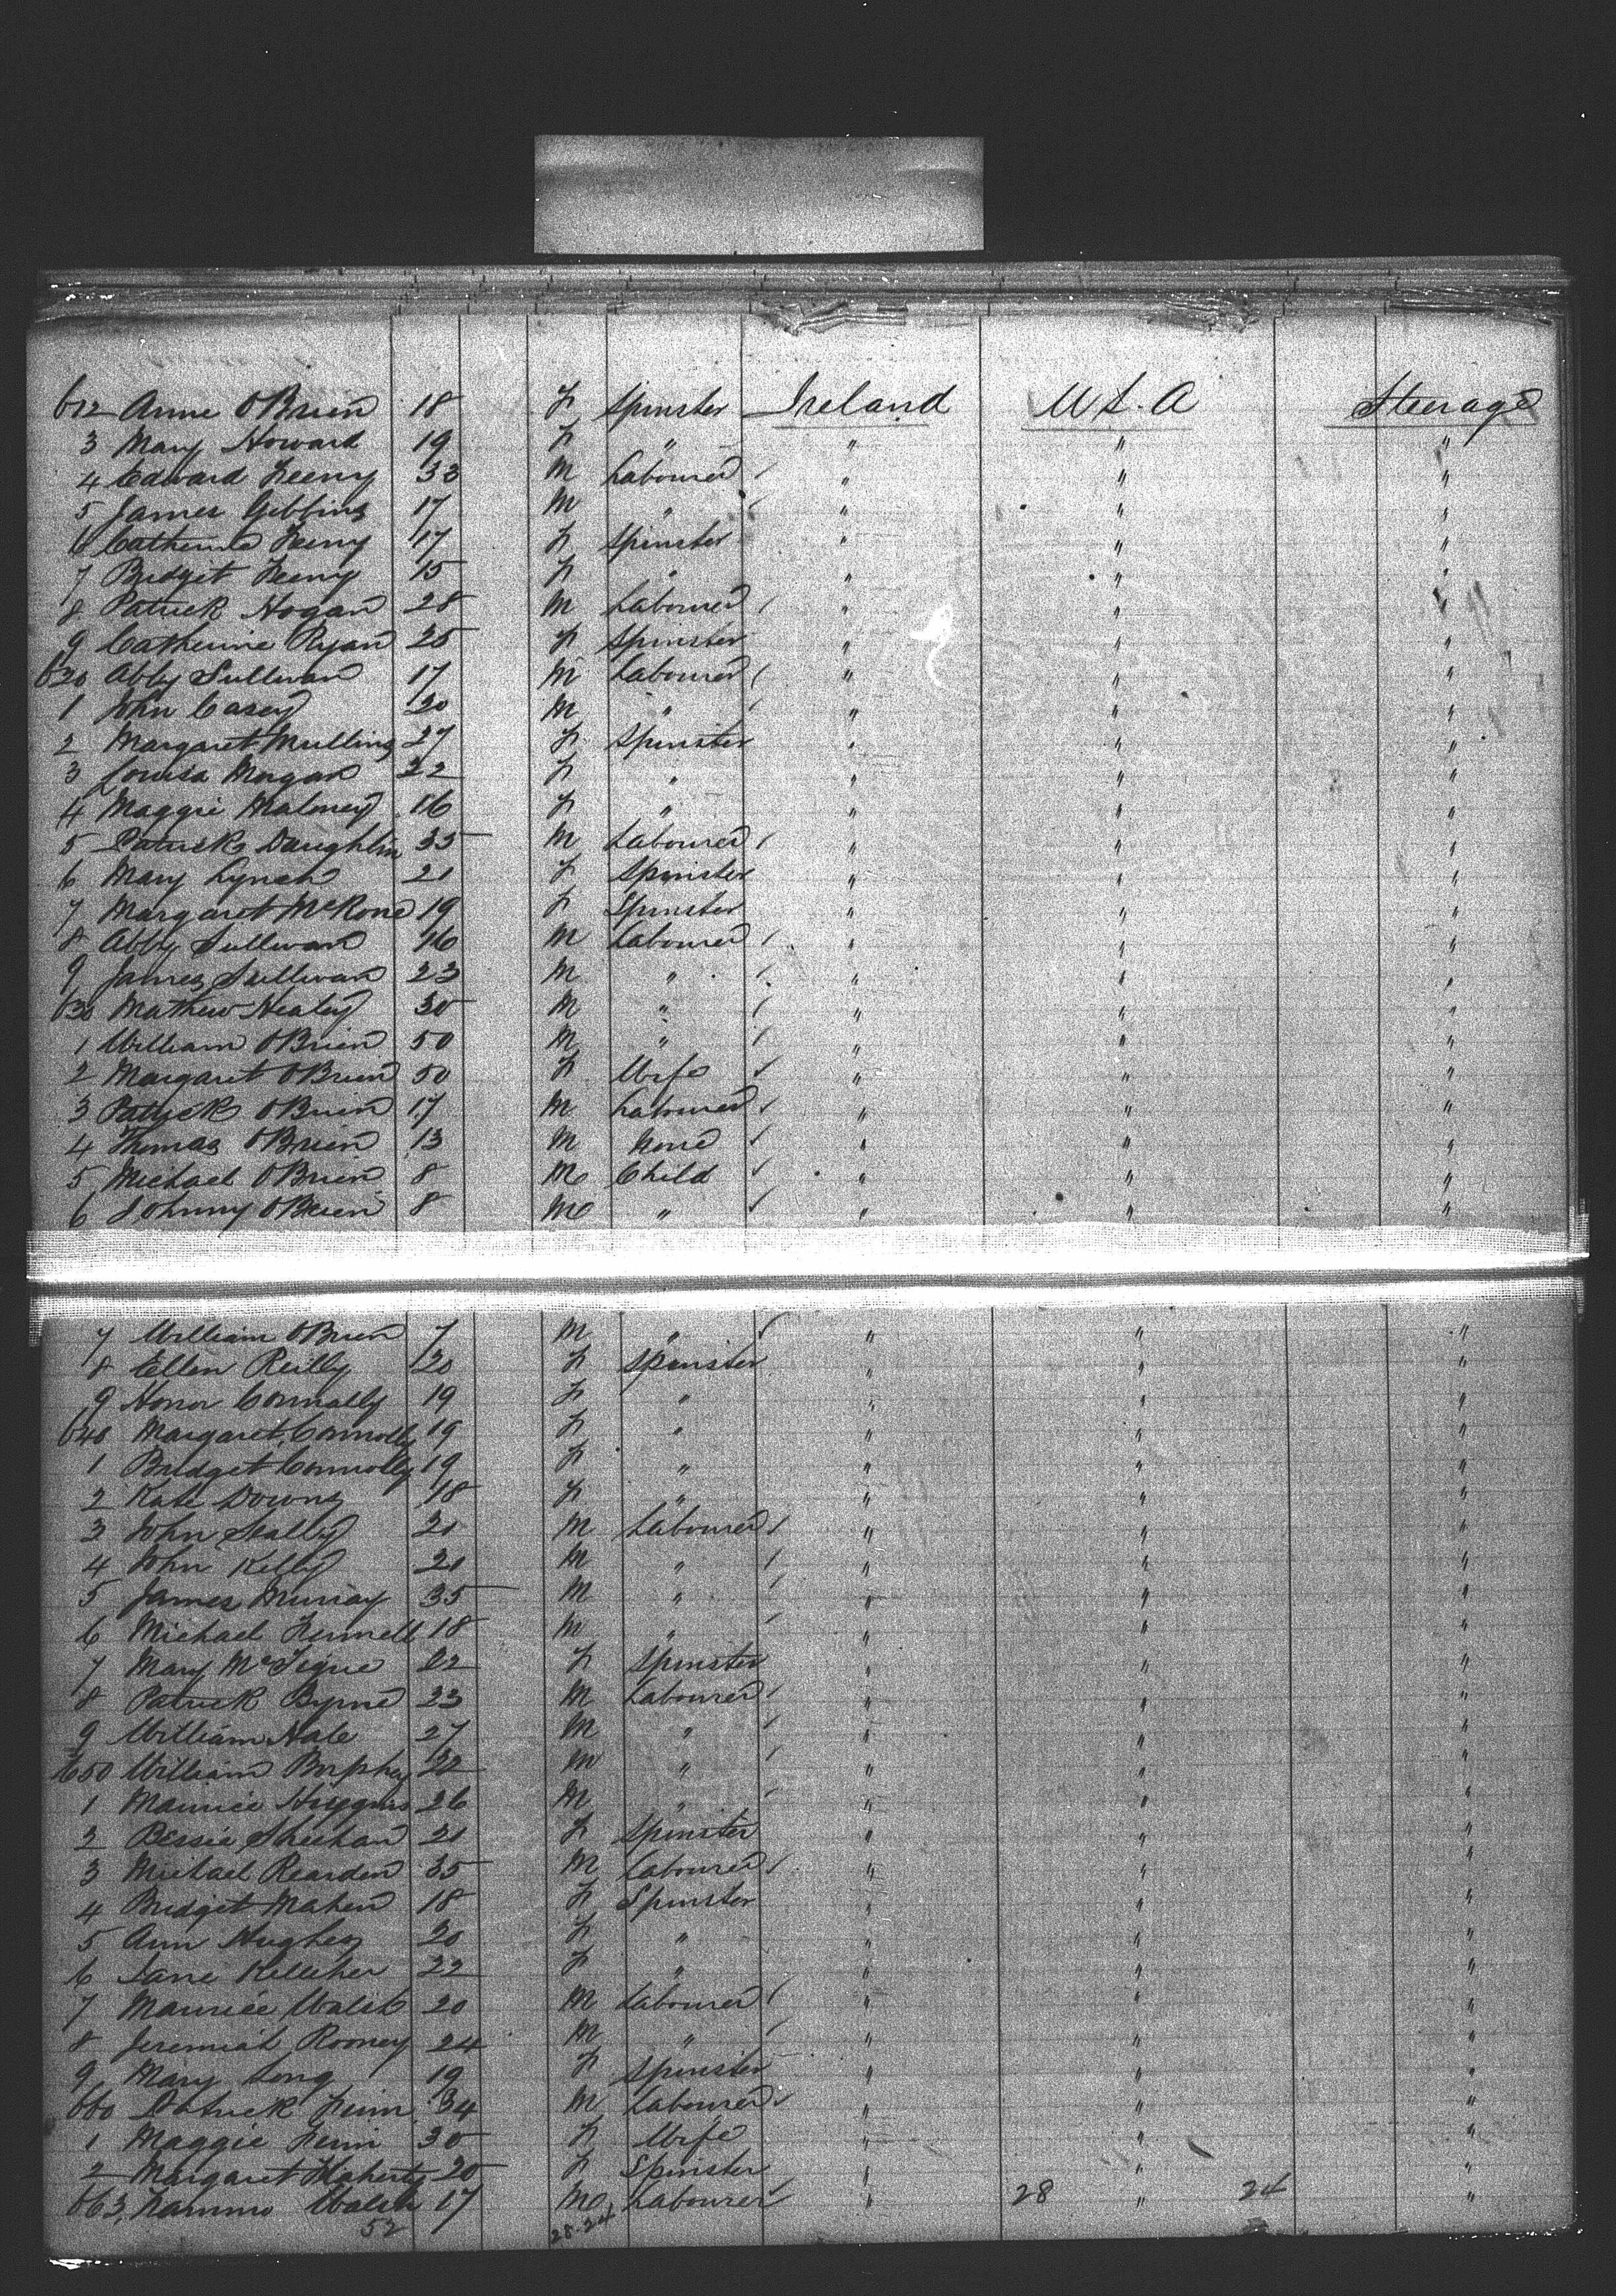 612 Anne OBrien 18 F Spinster Ireland U.S.A Steerage
3 Mary Howard 19 F " " " "
4 Edward Feeny 33 M Labourer " " "
5 James Gibbins 17 M " " " "
6 Catherine Feeny 17 F Spinster " " "
7 Bridget Feeny 15 F " " " "
8 Patrick Hogan 28 M Labourer " " "
9 Catherine Ryan 25 F Spinster " " "
620 Abby Sullivan 17 M Labourer " " "
1 John Casey 20 M " " " "
2 Margaret Mullins 27 F Spinster " " "
3 Louisa Morgan 22 F " " " "
4 Maggie Maloney 16 F " " " "
5 Patrick Daughlin 35 M Labourer " " "
6 Mary Lynch 21 F Spinster " " "
7 Margaret McKone 19 F Spinster " " "
8 Abby Sullivan 16 M Labourer " " "
9 James Sullivan 23 M " " " "
630 Mathew Healey 30 M " " " "
1 William OBrien 50 M " " " "
2 Margaret OBrien 50 F Wife " " "
3 Patrick OBrien 17 M Labourer " " "
4 Thomas OBrien 13 M None " " "
5 Michael OBrien 8 M Child " " "
6 Johnny OBrien 8 M " " " "
7 William OBrien 7 M " " " "
8 Ellen Reilly 20 F Spinster " " "
9 Honor Connolly 19 F " " " "
640 Margaret Connolly 19 F " " " "
1 Bridget Connolly 19 F " " " "
2 Kate Downs 18 F " " " "
3 John Scally 20 M Labourer " " "
4 John Kelly 20 M " " " "
5 James Murray 35 M " " " "
6 Michael Fennell 18 M " " " "
7 Mary McTigue 22 F Spinster " " "
8 Patrick Byrne 23 M Labourer " " "
9 William Hale 27 M " " " "
650 William 32 M " " " "
1 Maurice Huggins 26 M " " " "
2 Bessie Sheehan 21 F Spinster " " "
3 Michael Rearden 35 M Labourer " " "
4 Bridget Maher 18 F Spinster " " "
5 Ann Hughes 20 F " " " "
6 Jane Kelleher 22 F " " " "
7 Maurice Walsh 20 M Labourer " " "
8 Jeremiah Rooney 24 M " " " "
9 Mary Long 19 F Spinster " " "
660 Patrick 34 M Labourer " " "
1 Maggie 30 F Wife " " "
2 Margaret Flaherty 20 F Spinster " " "
663 Walsh 17 M Labourer " 28 " 24 "
52 28-24